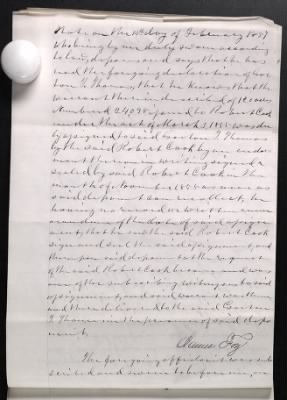 that on the day of February 1857
who being by me duly sworn according
to law, deposes and says that he has
read the foregoing declaration of
Thomas, that he knows that the
warrant therein described of acres
Numbered issued to Robert Cook
under the act of March 1855 was
assigned to said Thomas
by the said Robert Cook by an endorse
ment thereon in writing signed &
sealed by said Robert Cook in the
month of November 1855 as near as
said deponent can recollect, he
having no record or
of the date of said assign
ment, that he saw the said Robert Cook
sign and seal the said assignment, and
thereupon said deponent at the request
of the said Robert Cook became and was
one of the subscribing witnesses to said
assignment, and said warrant was then
and there delivered to the said
Thomas in the presence of said depo
nent.
The foregoing affidavit was sub
scribed and sworn to before me, on